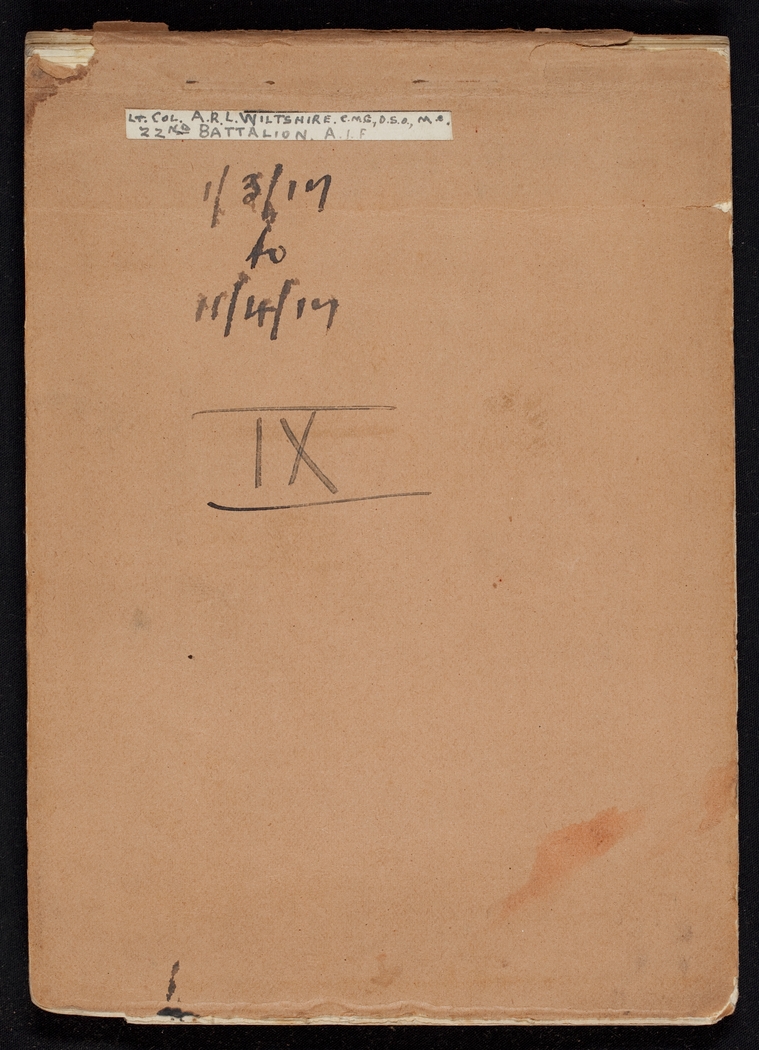 LT. COL. A.R.L. WILTSHIRE. C.M.G., D.S.O., M.C.
22ND BATTALION. A.I.F
1/3/17
to
11/4/17
IX